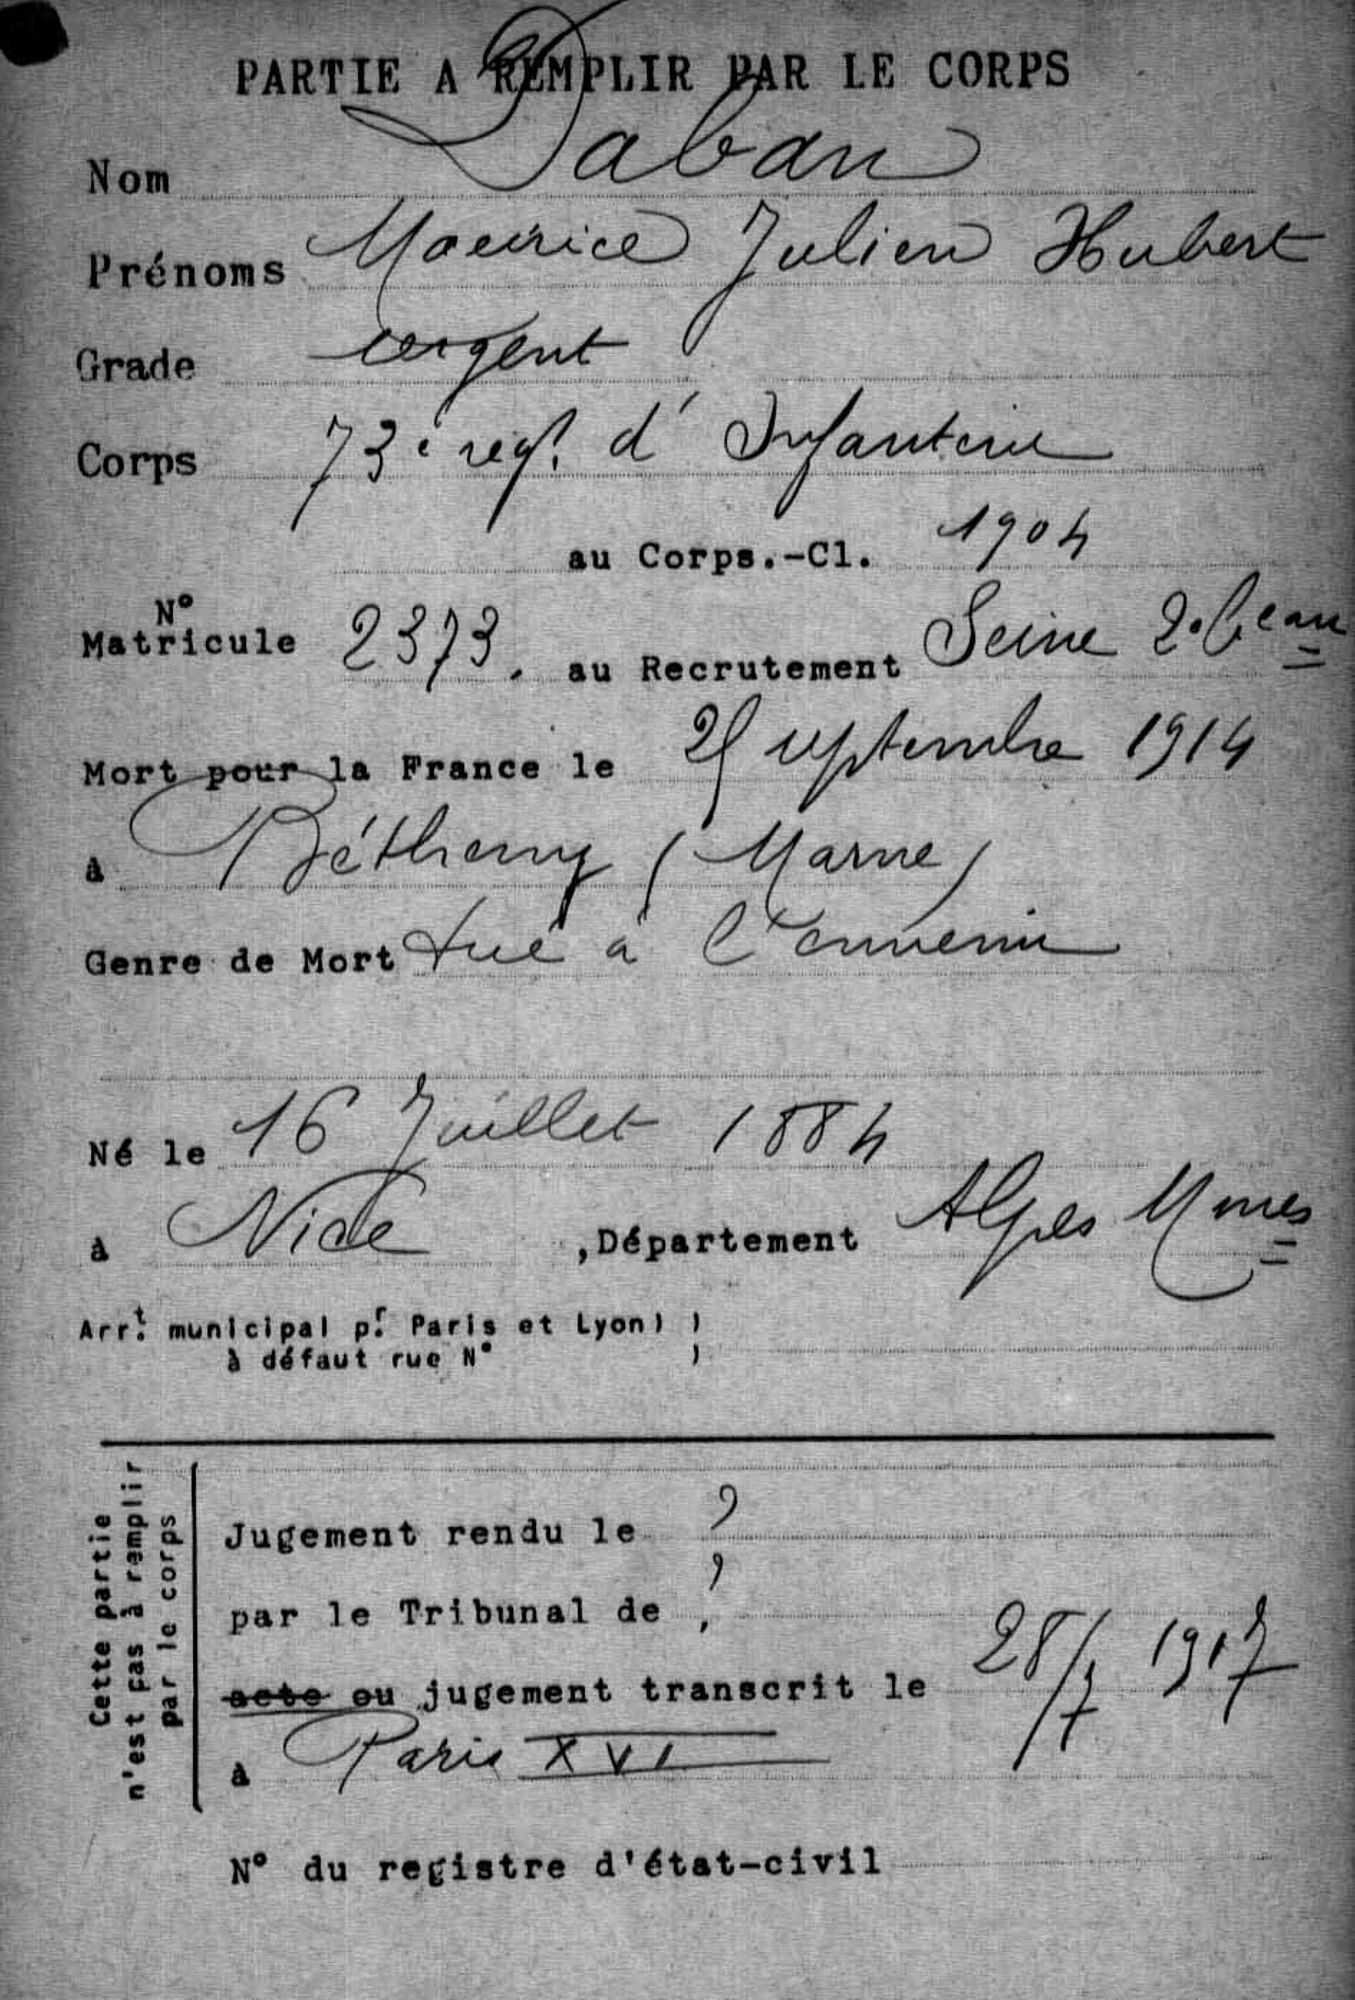 PARTIE A REMPLIR PAR LE CORPS
Nom Daban
Prénoms Maurice Julien Hubert
Grade sergent
Corps 73e regt. d'Infanterie
au Corps.-Cl. 1904
N°
Matricule 2373. au Recrutement Seine 2e Beau
Mort pour la France le septembre 1914
à Bétheny (Marne)
Genre de Mort tué à l'ennemi
Né le 16 Juillet 1884
à Nice ,Département Alpes Mmes
Arrt. municipal pr. Paris et Lyon) )
à défaut rue N° )
Cette partie
n'est pas à remplir
par le corps
Jugement rendu le ?
par le Tribunal de ?
acte ou jugement transcrit le 28/7 1917
à Paris XVI
N° du registre d'état-civil